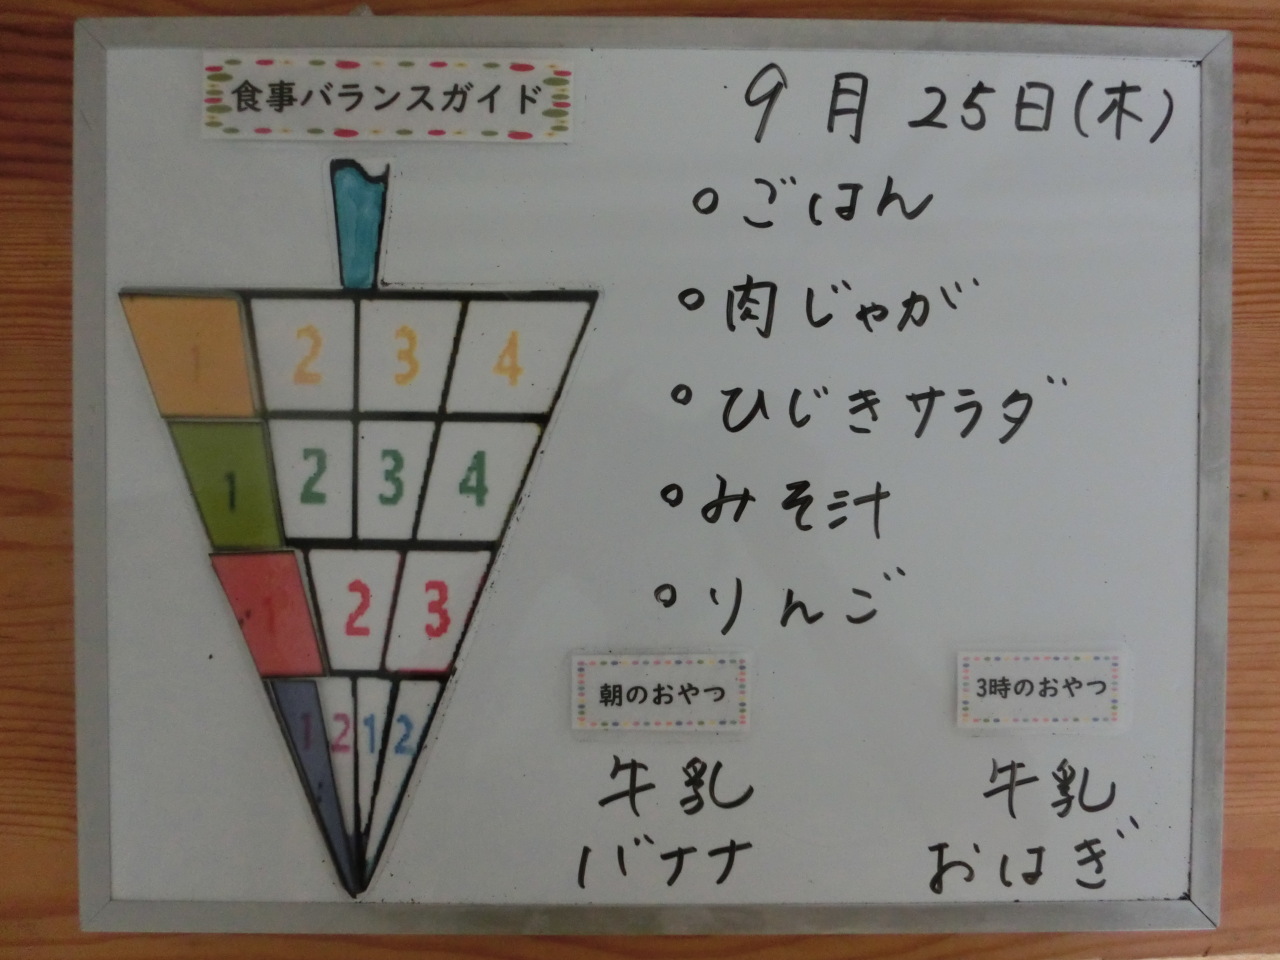 食事バランスガイド
9月25日(木)
○ごはん
○肉じゃが
○ひじきサラダ
○みそ汁
○りんご
1 2 3 4
1 2 3 4
1 2 3
1 2 1 2
朝のおやつ
牛乳
バナナ
3時のおやつ
牛乳
おはぎ